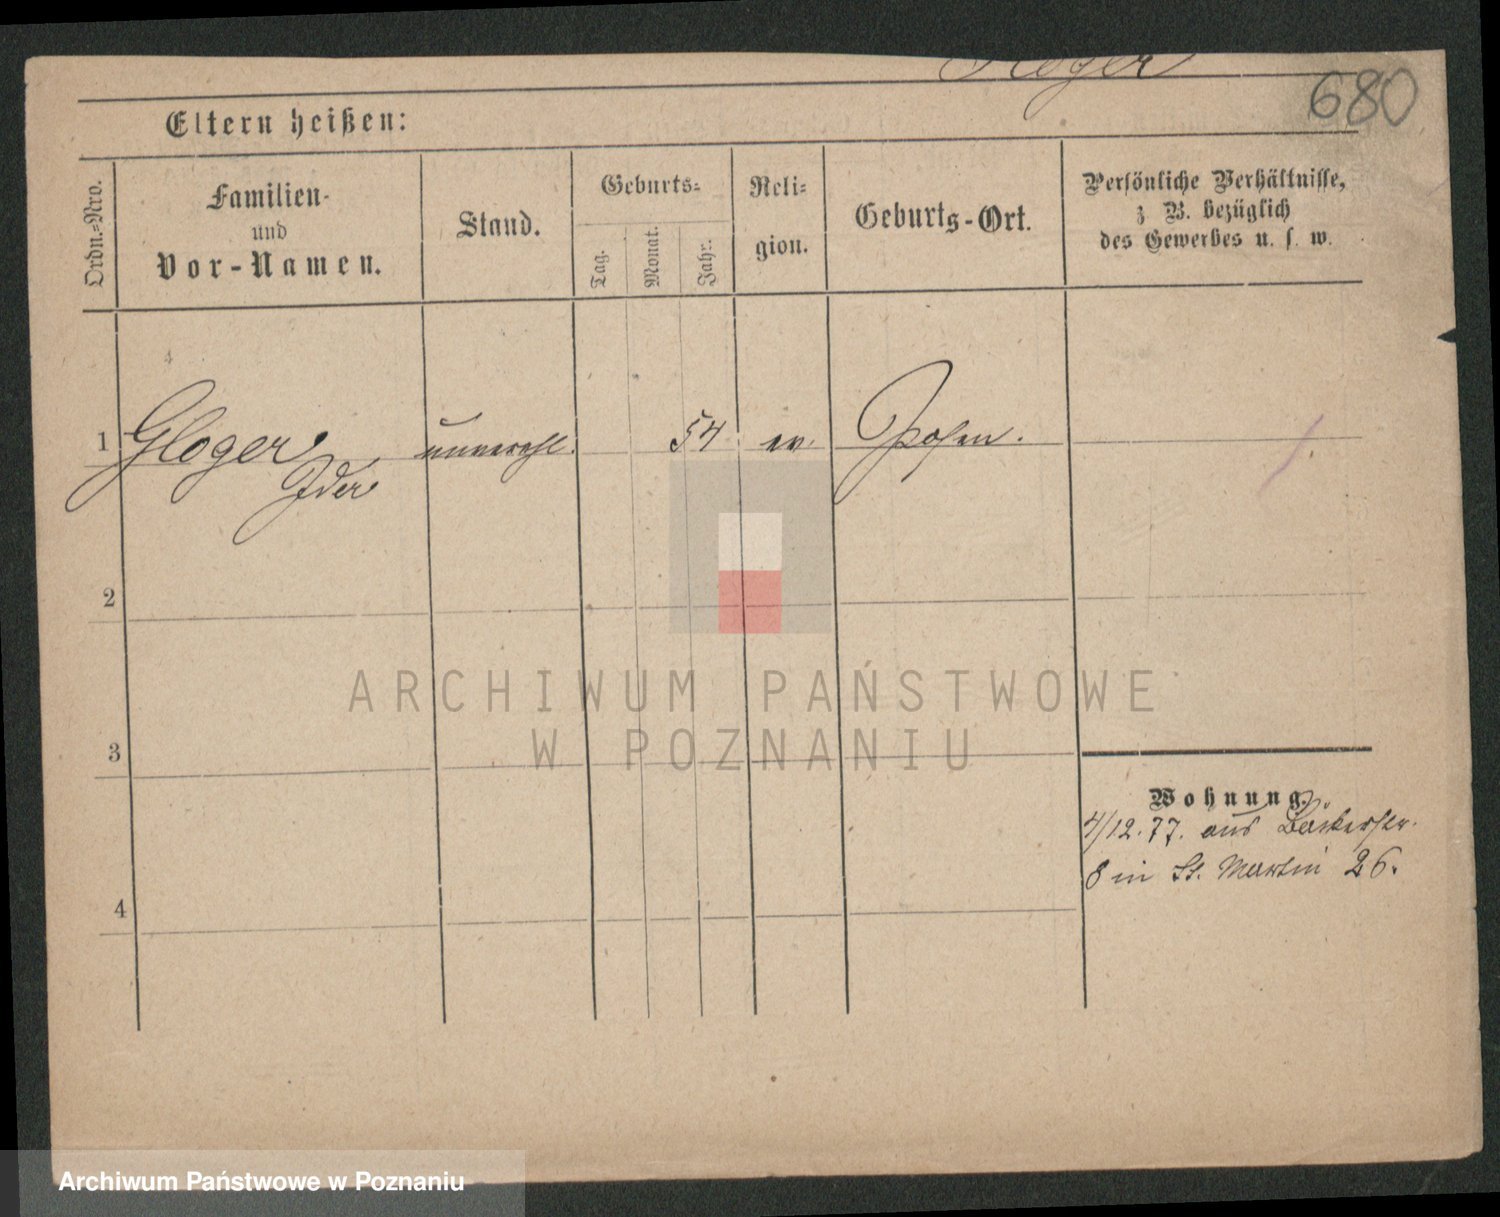 680
Eltern heißen:
Ordn.=Nro.
Familien-
und
Vor-Namen.
Stand.
Geburts=
Tag.
Monat.
Jahr.
Reli=
gion.
Geburts-Ort.
Persönliche Verhältnisse,
z. B. bezüglich
des Gewerbes u. s. w.
1 Gloger unverehl. 54 ev. Posen.
Ida
2
ARCHIWUM PAŃSTWOWE
W POZNANIU
3
Wohnung.
4/12.77. aus Bäckerstr.
8 in St. Martin 26.
4
Archiwum Państwowe w Poznaniu